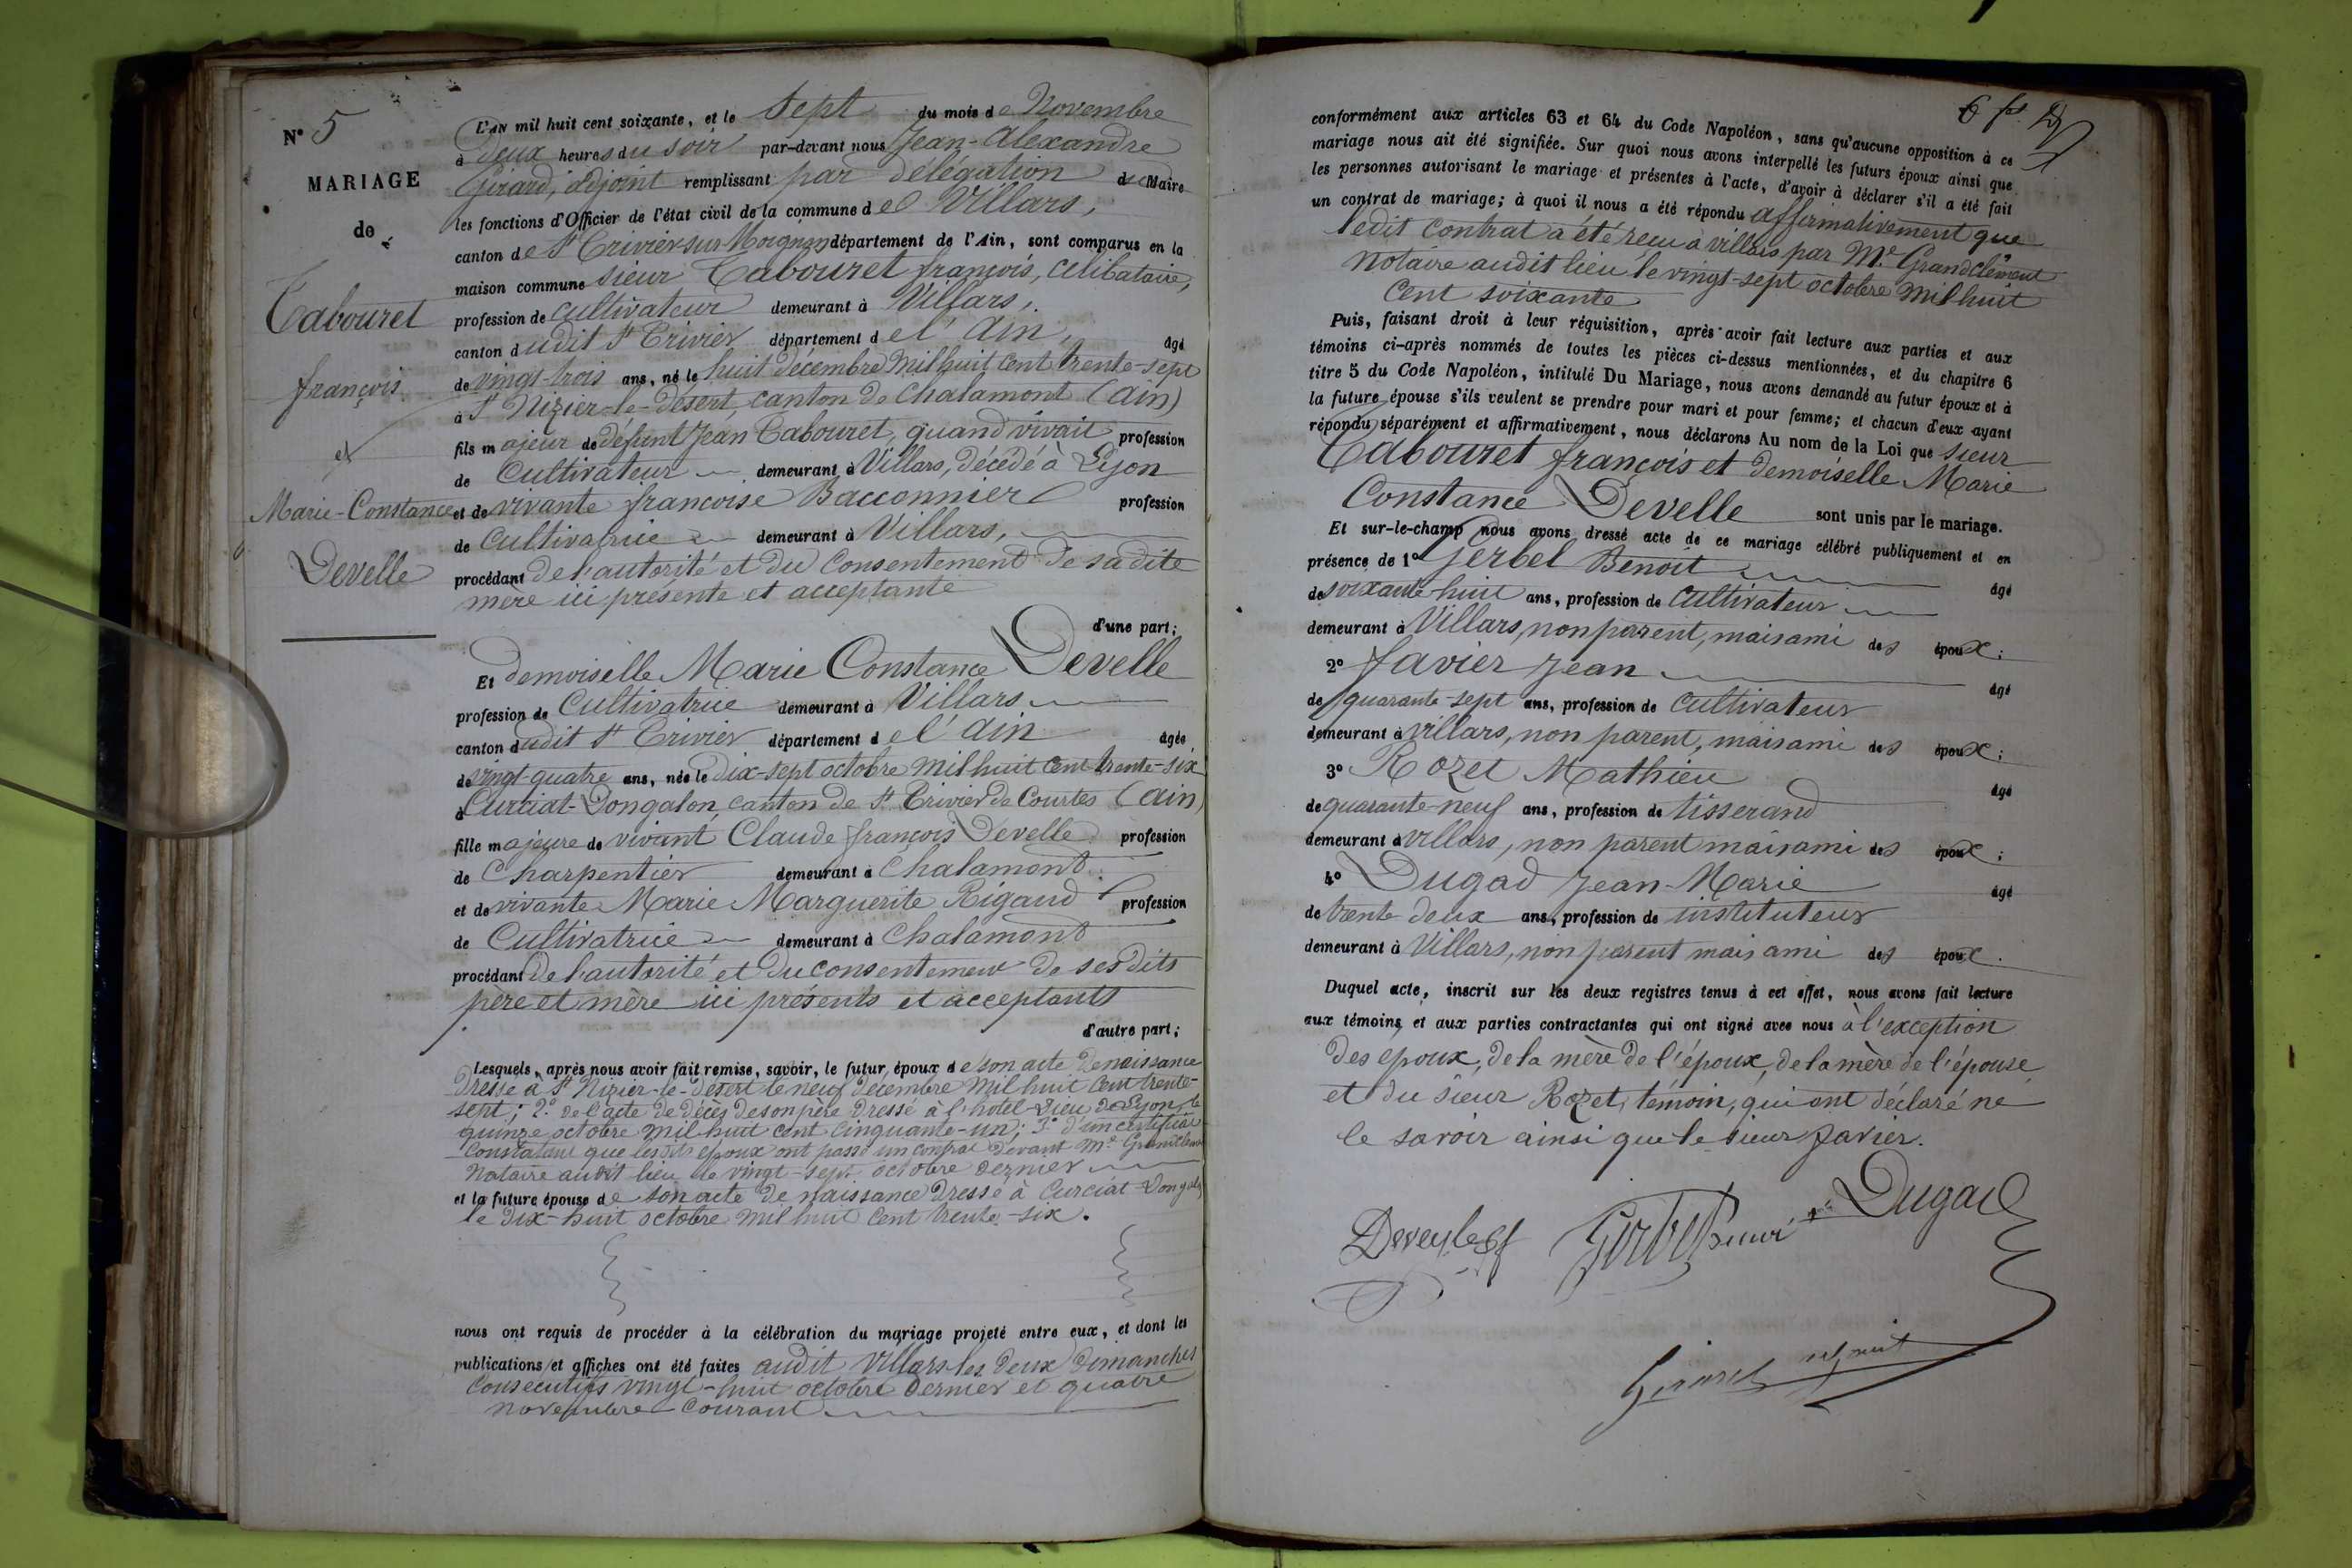 N° 5
MARIAGE
de
Tabouret
françois
et
Marie-Constance
Develle
L'AN mil huit cent soixante, et le sept du mois de Novembre
à deux heures du soir par-devant nous Jean-Alexandre
Girard, adjoint remplissant par délégation de Maire
les fonctions d'Officier de l'état civil de la commune de Villars,
canton de St Trivier-sur-Moignans département de l'Ain, sont comparus en la
maison commune sieur Tabouret françois, célibataire,
profession de cultivateur demeurant à Villars,
canton dudit St Trivier département de l'Ain, âgé
de vingt-trois ans, né le huit décembre mil huit cent trente-sept
à St Nizier-le-désert, canton de Chalamont (Ain)
fils majeur de défunt Jean Tabouret, quand vivait profession
de Cultivateur demeurant à Villars, décédé à Lyon
et de vivante françoise Bacconnier profession
de Cultivatrice demeurant à Villars,
procédant de l'autorité et du consentement de sa dite
mère ici présente et acceptante
d'une part;
Et demoiselle Marie Constance Develle
profession de Cultivatrice demeurant à Villars
canton dudit St Trivier département de l'Ain âgée
de vingt-quatre ans, née le Dix-sept octobre mil huit cent trente-six
à Curciat-Dongalon, canton de St Trivier de Courtes (Ain)
fille majeure de vivant Claude françois Develle profession
de Charpentier demeurant à Chalamont
et de vivante Marie Marguerite Rigaud profession
de Cultivatrice demeurant à Chalamont
procédant de l'autorité et du consentement de ses dits
père et mère ici présents et acceptants
d'autre part;
Lesquels, après nous avoir fait remise, savoir, le futur époux de son acte de naissance
dressé à St Nizier-le-désert le neuf décembre mil huit cent trente-
sept; 2° de l'acte de décès de son père dressé à l'hôtel-Dieu de Lyon, le
quinze octobre mil huit cent cinquante-un; 3° d'un certificat
constatant que lesdits époux ont passé un contrat devant Me Grandclément
Notaire audit lieu le vingt-sept octobre dernier
et la future épouse de son acte de naissance dressé à Curciat-Dongalon
le dix-huit octobre mil huit cent trente-six.
nous ont requis de procéder à la célébration du mariage projeté entre eux, et dont les
publications et affiches ont été faites audit Villars les deux dimanches
consécutifs vingt-huit octobre dernier et quatre
novembre courant
conformément aux articles 63 et 64 du Code Napoléon, sans qu'aucune opposition à ce
mariage nous ait été signifiée. Sur quoi nous avons interpellé les futurs époux ainsi que
les personnes autorisant le mariage et présentes à l'acte, d'avoir à déclarer s'il a été fait
un contrat de mariage; à quoi il nous a été répondu affirmativement que
ledit contrat a été reçu à villars par Me Grandclément
notaire audit lieu le vingt-sept octobre mil huit
cent soixante
Puis, faisant droit à leur réquisition, après avoir fait lecture aux parties et aux
témoins ci-après nommés de toutes les pièces ci-dessus mentionnées, et du chapitre 6
titre 5 du Code Napoléon, intitulé Du Mariage, nous avons demandé au futur époux et à
la future épouse s'ils veulent se prendre pour mari et pour femme; et chacun d'eux ayant
répondu séparément et affirmativement, nous déclarons Au nom de la Loi que sieur
Tabouret françois et demoiselle Marie
Constance Develle sont unis par le mariage.
Et sur-le-champ nous avons dressé acte de ce mariage célébré publiquement et en
présence de 1° Gerbel Benoit âgé
de soixante huit ans, profession de Cultivateur
demeurant à Villars, non parent, mais ami des époux;
2° favier Jean âgé
de quarante-sept ans, profession de cultivateur
demeurant à villars, non parent, mais ami des époux;
3° Rozet Mathieu âgé
de quarante-neuf ans, profession de tisserand
demeurant à villars, non parent mais ami des époux;
4° Dugad Jean-Marie âgé
de trente deux ans, profession de instituteur
demeurant à Villars, non parent mais ami des époux.
Duquel acte, inscrit sur les deux registres tenus à cet effet, nous avons fait lecture
aux témoins et aux parties contractantes qui ont signé avec nous à l'exception
des époux, de la mère de l'époux, de la mère de l'épouse
et du sieur Rozet, témoin, qui ont déclaré ne
le savoir ainsi que le sieur favier.
Dugad
Girard adjoint